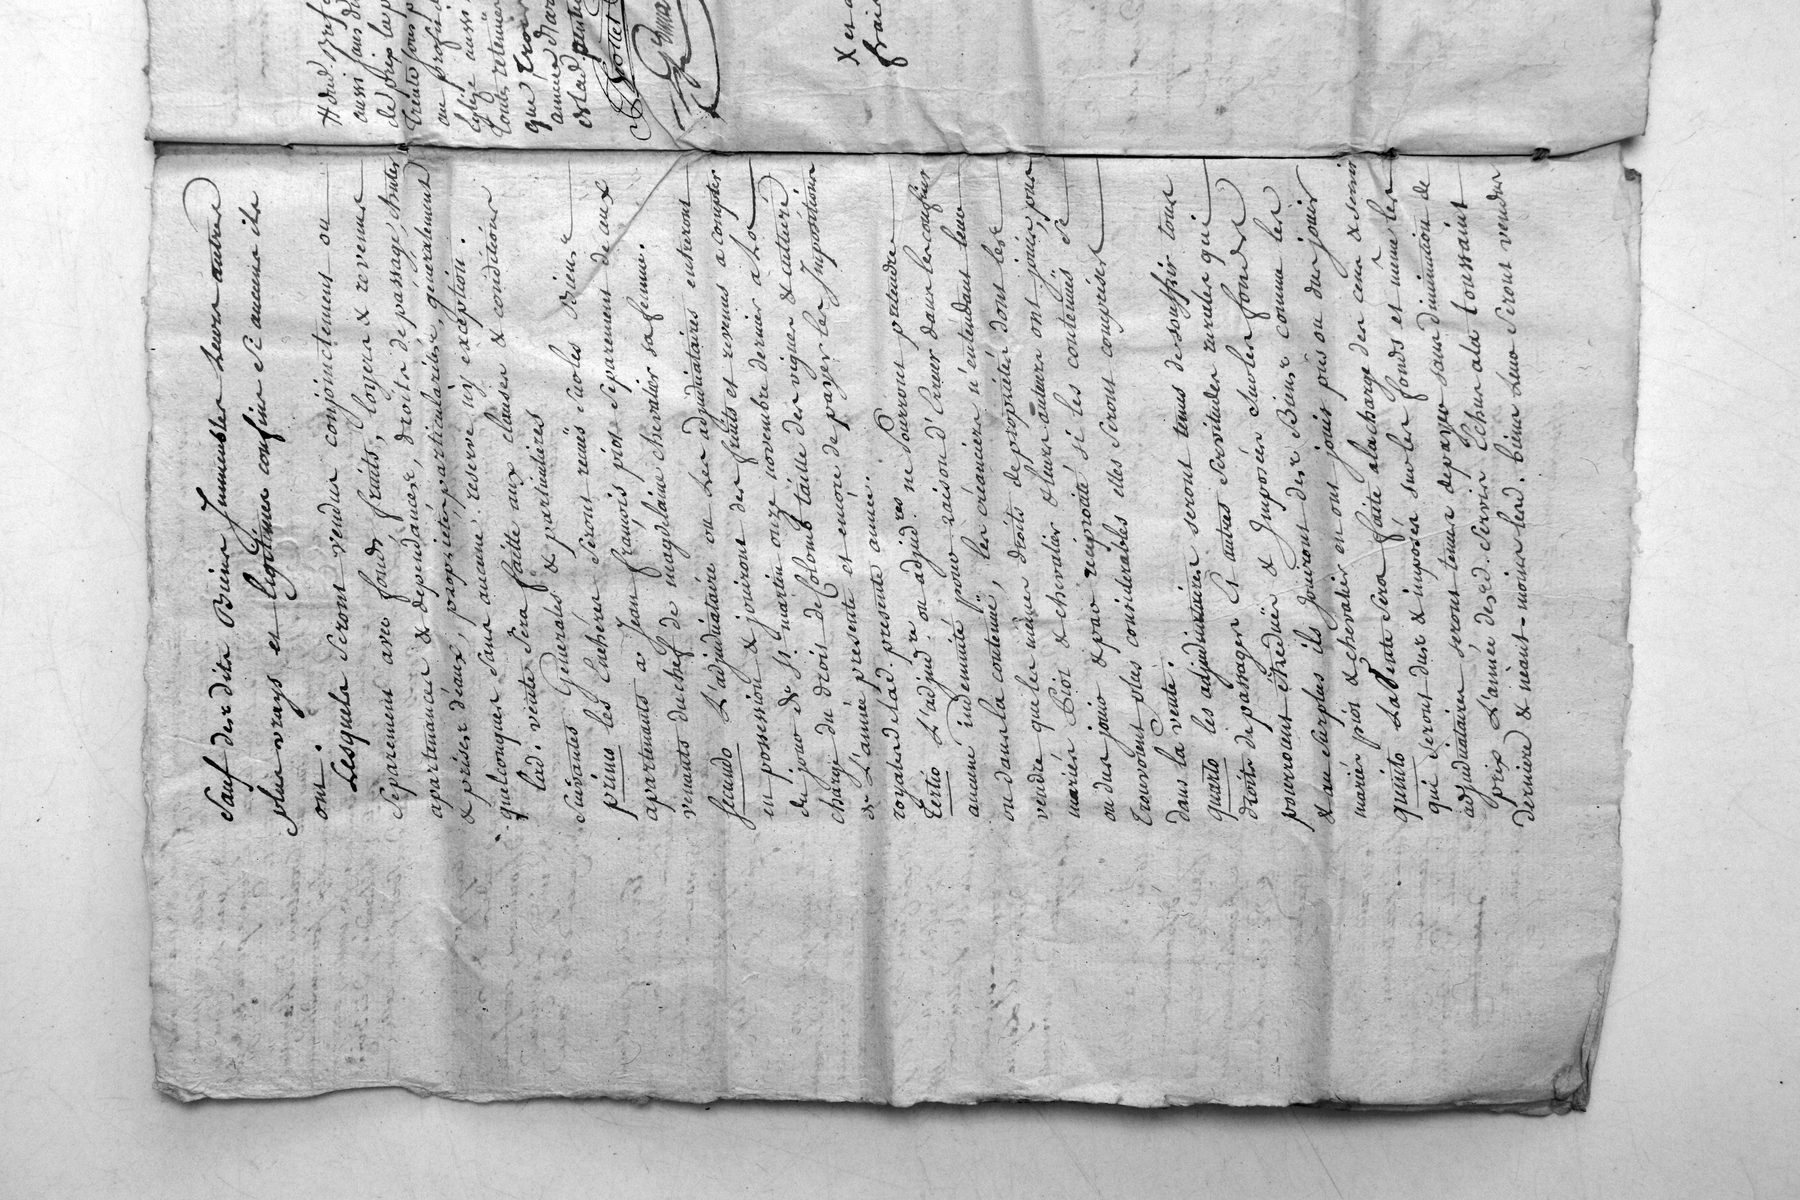 Sauf desdits Biens Immeubles leurs autres
plus vrays et legitimes confins se aucuns ils
ont.
Lesquels seront vendus conjoinctement ou
separement avec fonds, fruits, loyers & revenus
apartenances & dependances, droits de passage, chutes
& prises déaux, proprietés particularités, generalement
quelconques sans aucune reserve n'y exception.
lad. vente sera faitte aux clauses & conditions
suivantes Generales & particulieres
primo les Encheres seront remis sur les Biens
apartenants a Jean françois piot separement de ceux
venants du chef de magdelaine chevalier sa femme.
secundo L'adjudicataire ou Les adjudicataires entreront
en possession & jouiront des fruits et revenus a compter
du jour de St. martin onze novembre dernier a La
charge du droit de Colons taille des vignes & culturé
de L'année presente et encore de payer les Impositions
royales de lad. presente année.
Tertio L'adjud.re ou adjud.res ne Pourront pretendre
aucune indemnité pour raison d'Erreur dans les confins
ou dans la contenuë, les créanciers n'entendants leur
vendre que les mêmes droits de proprietés dont les
mariés Piot & chevalier & leurs auteurs ont joui, pu
ou dus jouir & par reciprocité si les contenuës se
trouvoient plus considerables elles seront comprises
dans la vente.
quarto les adjudicataires seront tenus de souffrir tous
droits de passages Et autres servitudes rurales qui
pourroient être duës & Imposées sur les fonds
& au surplus ils Jouiront des Biens comme les
mariés piot & chevalier en ont jouis pûs ou dus jouir
quinto La Vente sera faite a la charge des cens & servis
qui seront dus & imposés sur les fonds et même les
adjudicataires seront tenus de payer sans diminution de
prix L'année des d. servis Echus a la toussaint
derniere & néant-moins les d. biens leur seront vendus